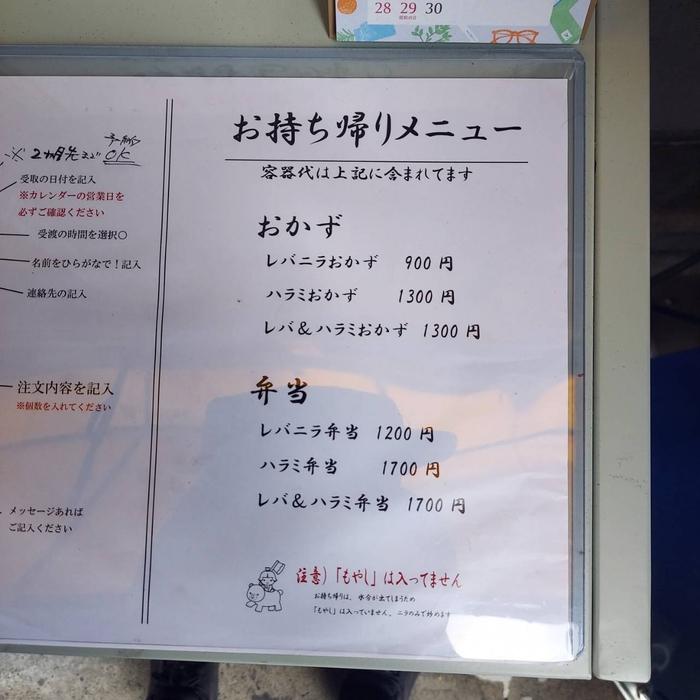 28 29 30
※2か月先まで
予約
OK
受取の日付を記入
※カレンダーの営業日を
必ずご確認ください
受渡の時間を選択〇
名前をひらがなで！記入
連絡先の記入
注文内容を記入
※個数を入れてください
メッセージあれば
ご記入ください
お持ち帰りメニュー
容器代は上記に含まれてます
おかず
レバニラおかず 900 円
ハラミおかず 1300 円
レバ＆ハラミおかず 1300 円
弁当
レバニラ弁当 1200 円
ハラミ弁当 1700 円
レバ＆ハラミ弁当 1700 円
注意）「もやし」は入ってません
お持ち帰りは、水分が出てしまうため
「もやし」は入っていません、ニラのみで炒めます